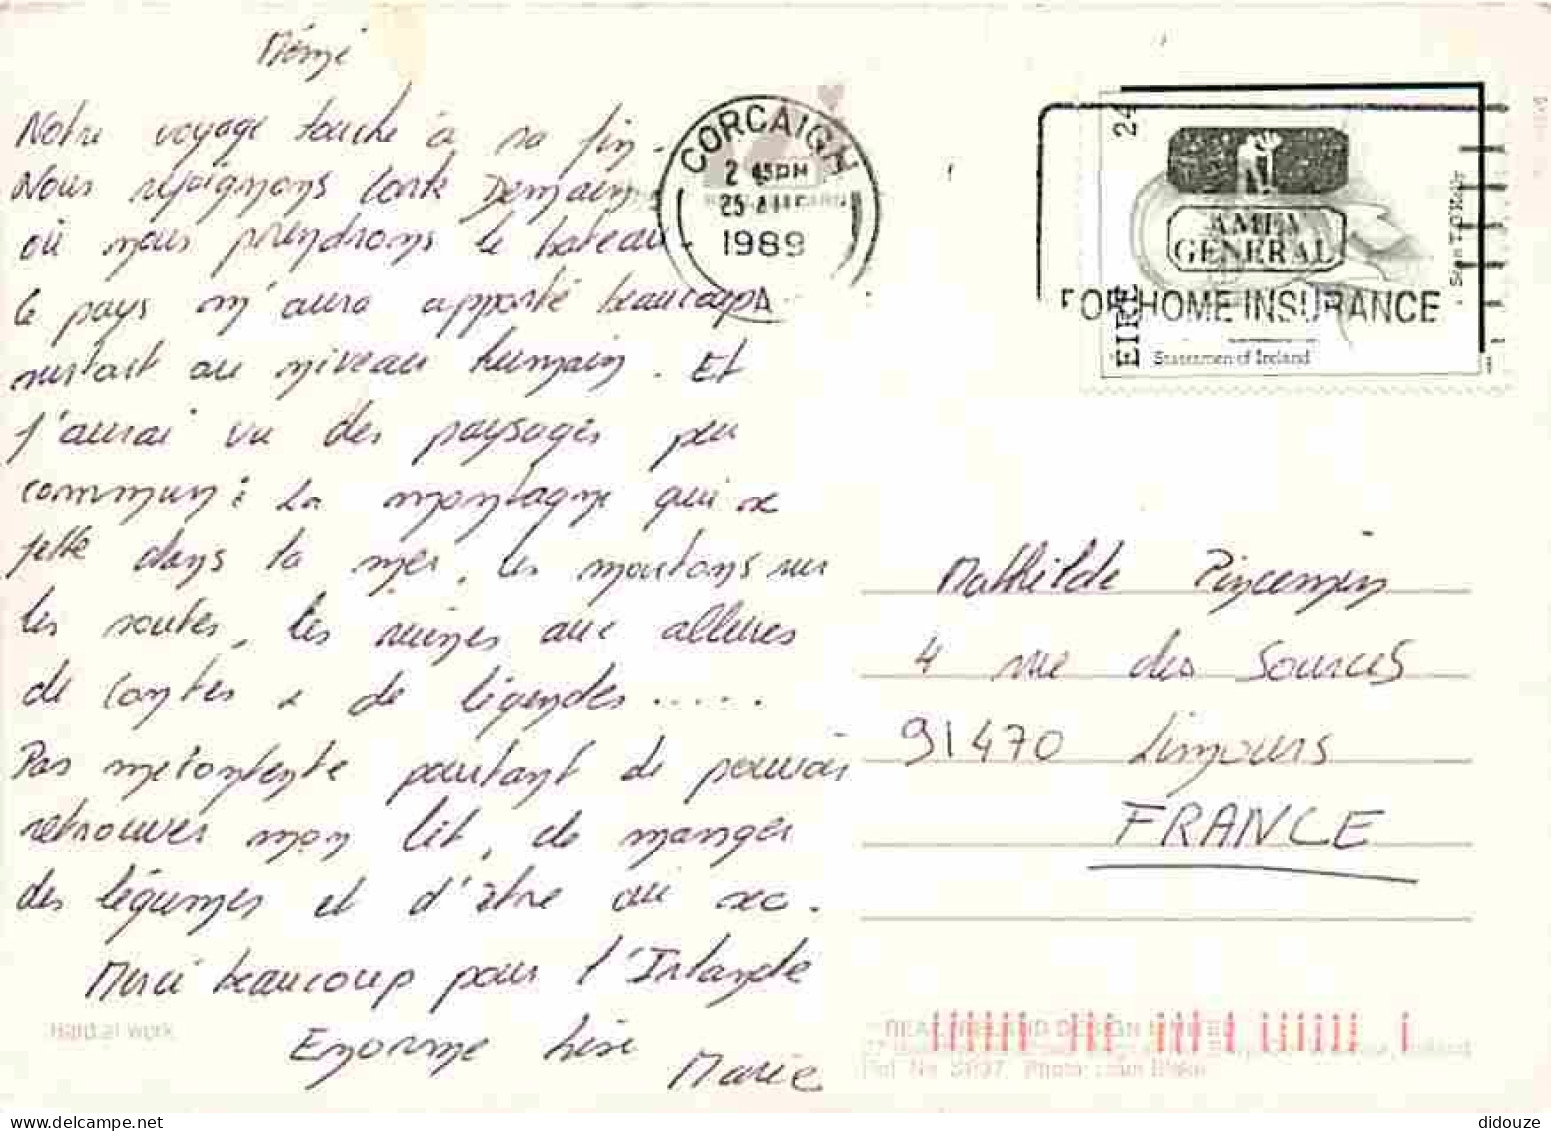 Mémé
Notre voyage touche à sa fin.
Nous rejoignons Cork Demain
où nous prendrons le bateau.
Ce pays m'aura apporté beaucoup
surtout au niveau humain. Et
j'aurai vu des paysages peu
commun : La montagne qui se
jette dans la mer, les moutons sur
les routes, les ruines aux allures
de contes & de légendes.....
Pas mécontente pourtant de pouvoir
retrouver mon lit, de manger
des légumes et d'être au sec.
Merci beaucoup pour l'Irlande
Enorme bise
Marie
CORCAIGH
2 45PM
25
1989
A
EIRE 24
AMEV
GENERAL
FOR HOME INSURANCE
Statesmen of Ireland
Mathilde Pincemin
4 rue des Sources
91470 Limours
FRANCE
Hard at work
REAL IRELAND DESIGN LIMITED
didouze